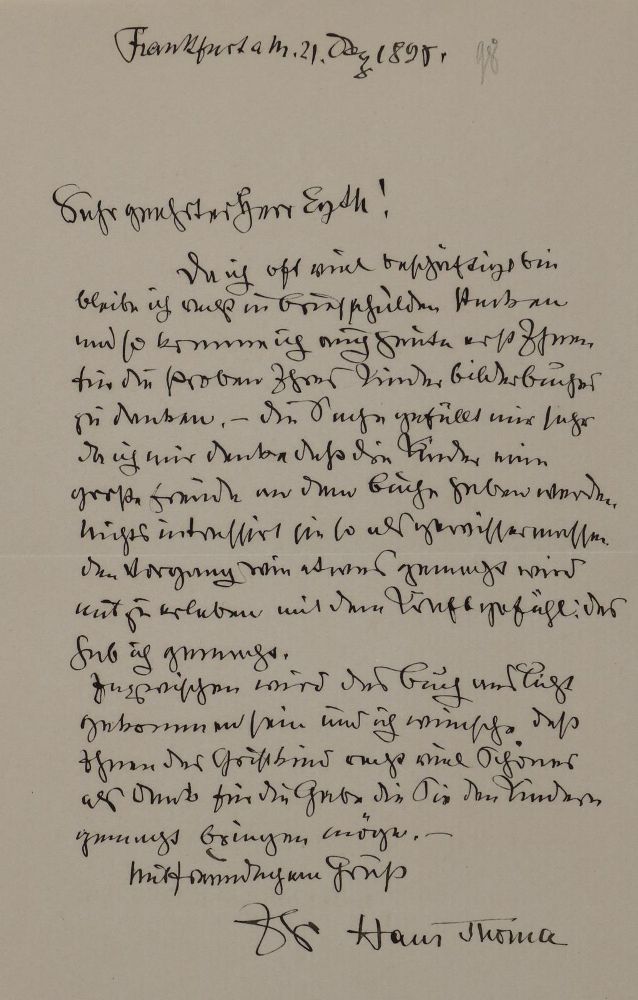 Frankfurt a M. 21. Dez 1898. 98
Sehr geehrter Herr Eyth!
Da ich oft viel beschäftigt bin
bleibe ich recht in Briefschulden stecken
und so komme ich auch heute erst Ihnen
für die Proben Ihres Kinderbilderbuches
zu danken. – die Sache gefällt mir sehr
da ich mir denke daß die Kinder eine
große Freude an dem Buche haben werden.
Nichts intressirt sie so als gewissermassen
den Vorgang wie etwas gemacht wird
mit zu erleben mit dem Kraftgefühl: das
hab ich gemacht.
Inzwischen wird das Buch ans Licht
gekommen sein und ich wünsche daß
Ihnen das Christkind recht viel Schönes
als Dank für die Gabe die Sie den Kindern
gemacht bringen möge. –
Mit freundlichem Gruß
Ihr Hans Thoma